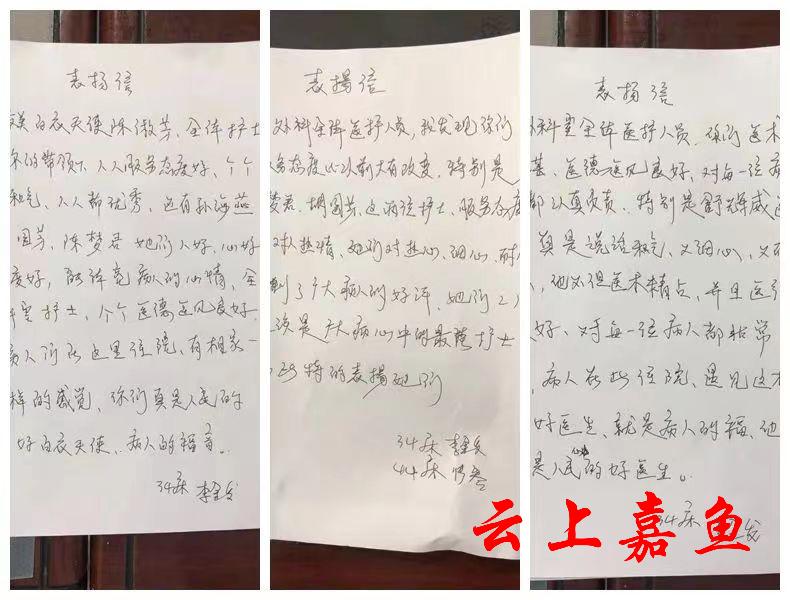 表扬信
美白衣天使陈傲芳、全体护士
的带领下人人服务态度好、个个
和气、人人都优秀、还有孙海燕
国芳、陈梦君她们人好、心好
度好,能体亮病人的心情、全
护士、个个医德医风良好.
病人们在这里住院、有相家一
样的感觉、你们真是人民的
好白衣天使、病人的福音.
34床
表揚信
外科全体医护人员,我发现你们
务态度比以前大有改变.特别是
胡国芳、这两位护士、服务态度
对人热情、她们对热心、细心、耐
到了广大病人们好评、她们2人
该是广大病心中的最美护士
特的表揚她们
34床
44床
表扬信
外科室全体医护人员.你们医术
医德医风良好、对每一位病
都认真负责.特别是舒辉威
真是说话和气、又细心、又
他不但医术精占、并且医
好、对每一位病人都非常
病人能在此住院、遇见这
好医生、就是病人的福、他
是人民的好医生。
34床
云上嘉鱼